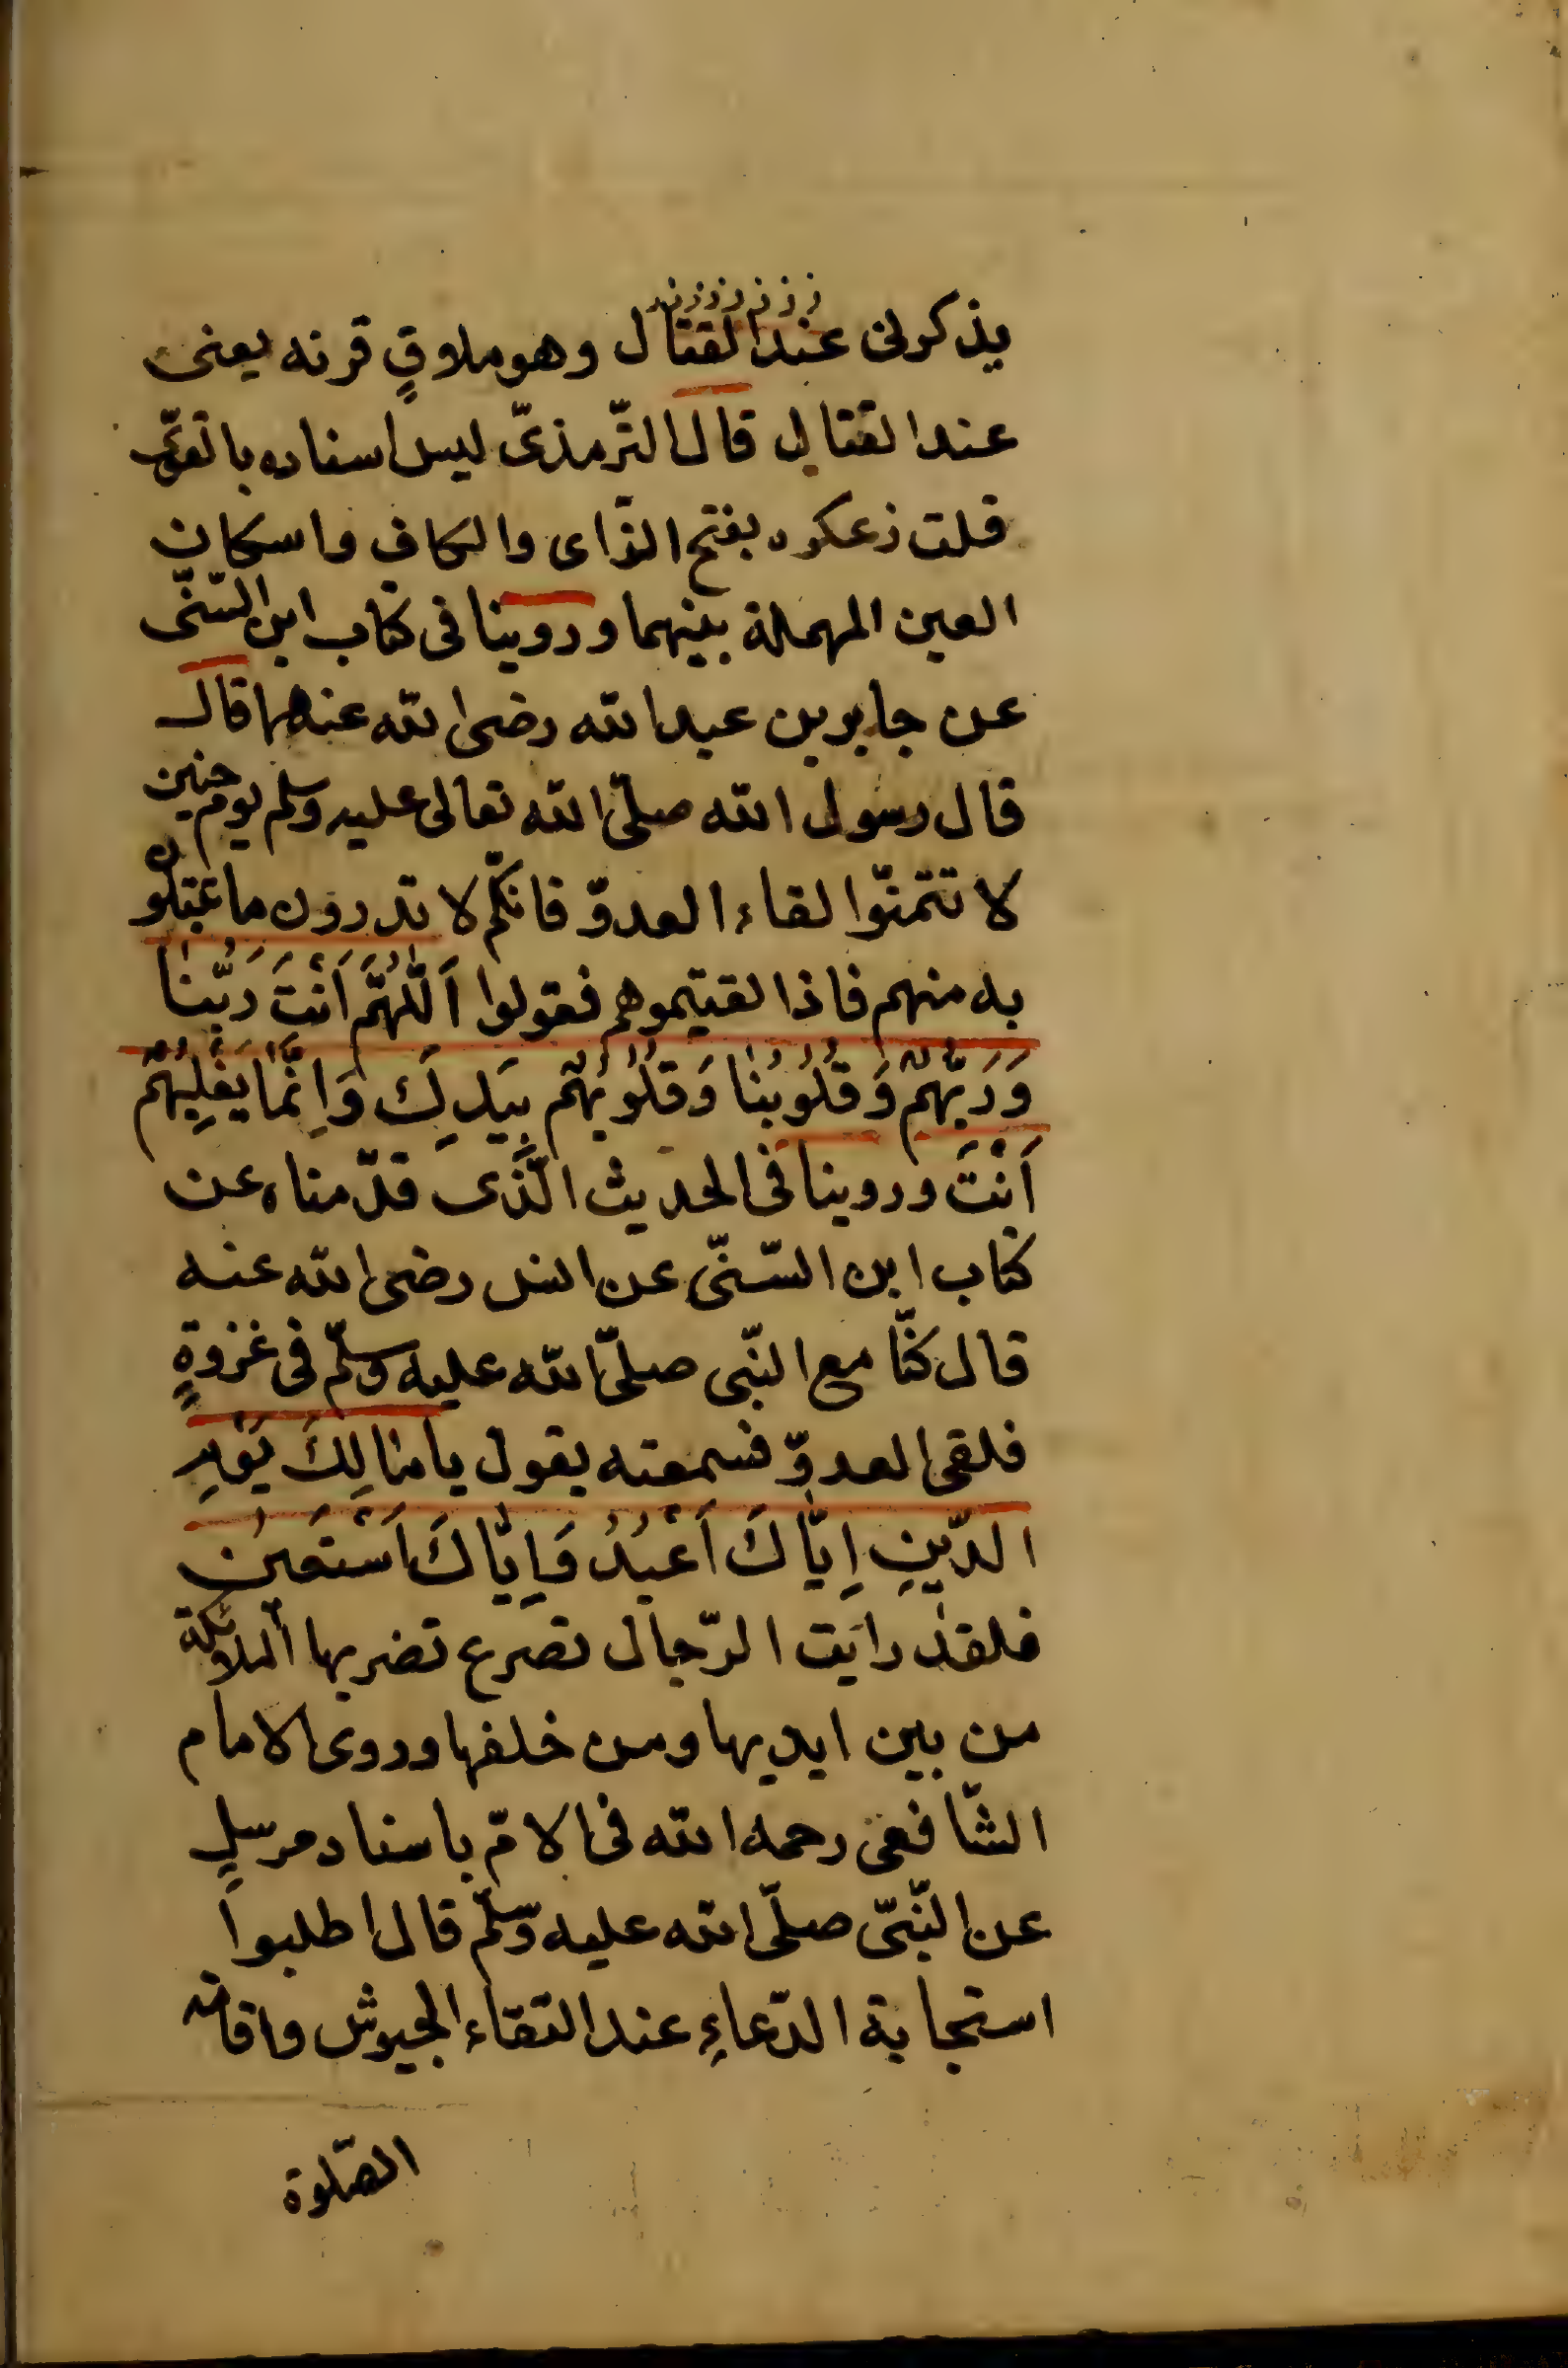 يذكرنى عند القتال وهو ملاقٍ قرنه يعنى
عند القتال قال الترّمذىّ ليس اسناده بالقوىّ
قلت زعكره بفتح الزّاى والكاف واسكان
العين المهملة بينهما وروينا فى كتاب ابن السّنّى
عن جابر بن عبد الله رضى الله عنهما قال
قال رسول الله صلّى الله تعالى عليه وسلم يوم حنين
لا تتمنّوا لقاء العدوّ فانّكم لا تدرون ما تبتلون
به منهم فاذا لقيتموهم فقولوا اَللّٰهُمَّ اَنْتَ رَبُّنٰا
وَرَبُّهُمْ وَقُلُوبُنٰا وَقُلُوُبُهُمْ بِيَدِكَ وَاِنَّمٰا يَغْلِبُهُمْ
اَنْتَ وروينا فى الحديث الّذى قدّمناه عن
كتاب ابن السّنّى عن انس رضى الله عنه
قال كنّا مع النّبى صلّى الله عليه وسلّم فى غزوةٍ
فلقى العدوّ فسمعته يقول يا مٰالِكَ يَوْمِ
الدّينِ اِيّٰاكَ اَعْبُدُ وَاِيّٰاكَ اَسْتَعينُ
فلقد رايت الرّجال تصرع تضربها الملائكة
من بين ايديها ومن خلفها وروى الامام
الشّافعى رحمه الله فى الامّ باسناد مرسلٍ
عن النّبىّ صلّى الله عليه وسلّم قال اطلبوا
استجابة الدّعاءِ عند التقاء الجيوش واقامة
الصّلوة